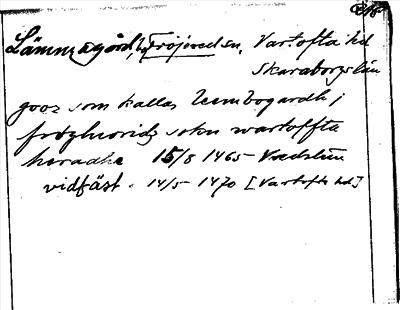 Lämmagård, Fröjered sn, Vartofta hd
Skaraborgs län
gooz som kallas lembogardh j
fröghuoridz sokn wartoffta
heradhe 15/8 1465 Vredstün
vidfäst. 14/5 1470 [Vartofta hd]